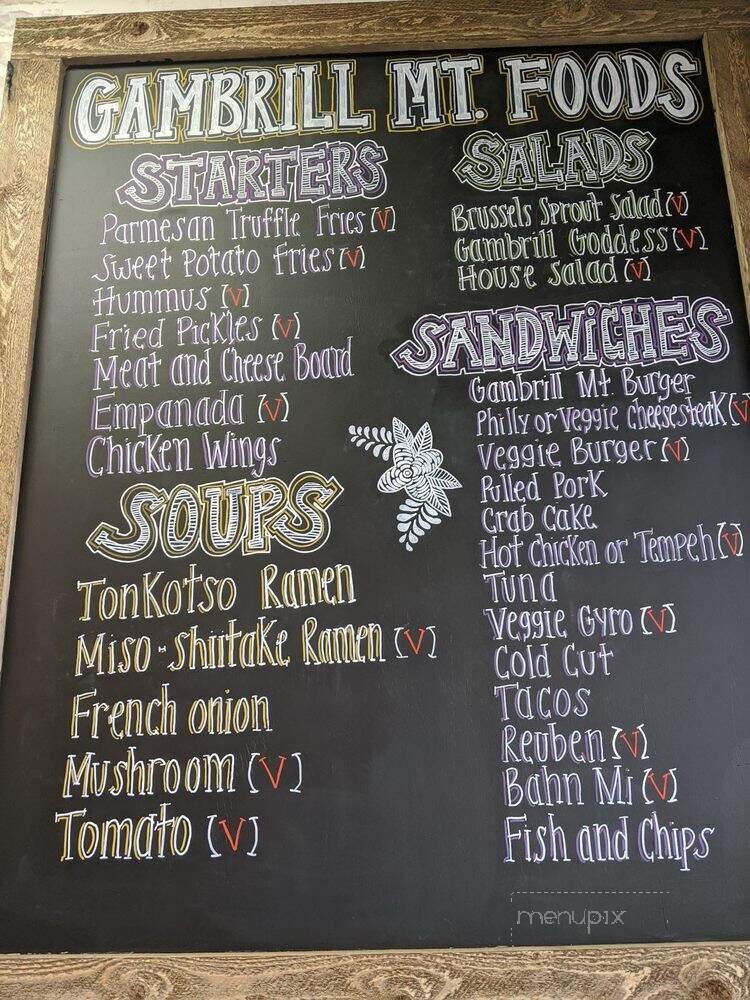 GAMBRILL MT. FOODS
STARTERS
Parmesan Truffle Fries [V]
Sweet Potato Fries [V]
Hummus [V]
Fried Pickles [V]
Meat and Cheese Board
Empanada [V]
Chicken Wings
SOUPS
Tonkotso Ramen
Miso-Shiitake Ramen [V]
French onion
Mushroom [V]
Tomato [V]
SALADS
Brussels Sprout Salad [V]
Gambrill Goddess [V]
House Salad [V]
SANDWiCHES
Gambrill Mt. Burger
Philly or Veggie Cheesesteak [V
Veggie Burger [V]
Pulled Pork
Crab Cake
Hot chicken or Tempeh [V]
Tuna
Veggie Gyro [V]
Cold Cut
Tacos
Reuben [V]
Bahn Mi [V]
Fish and Chips
menupix